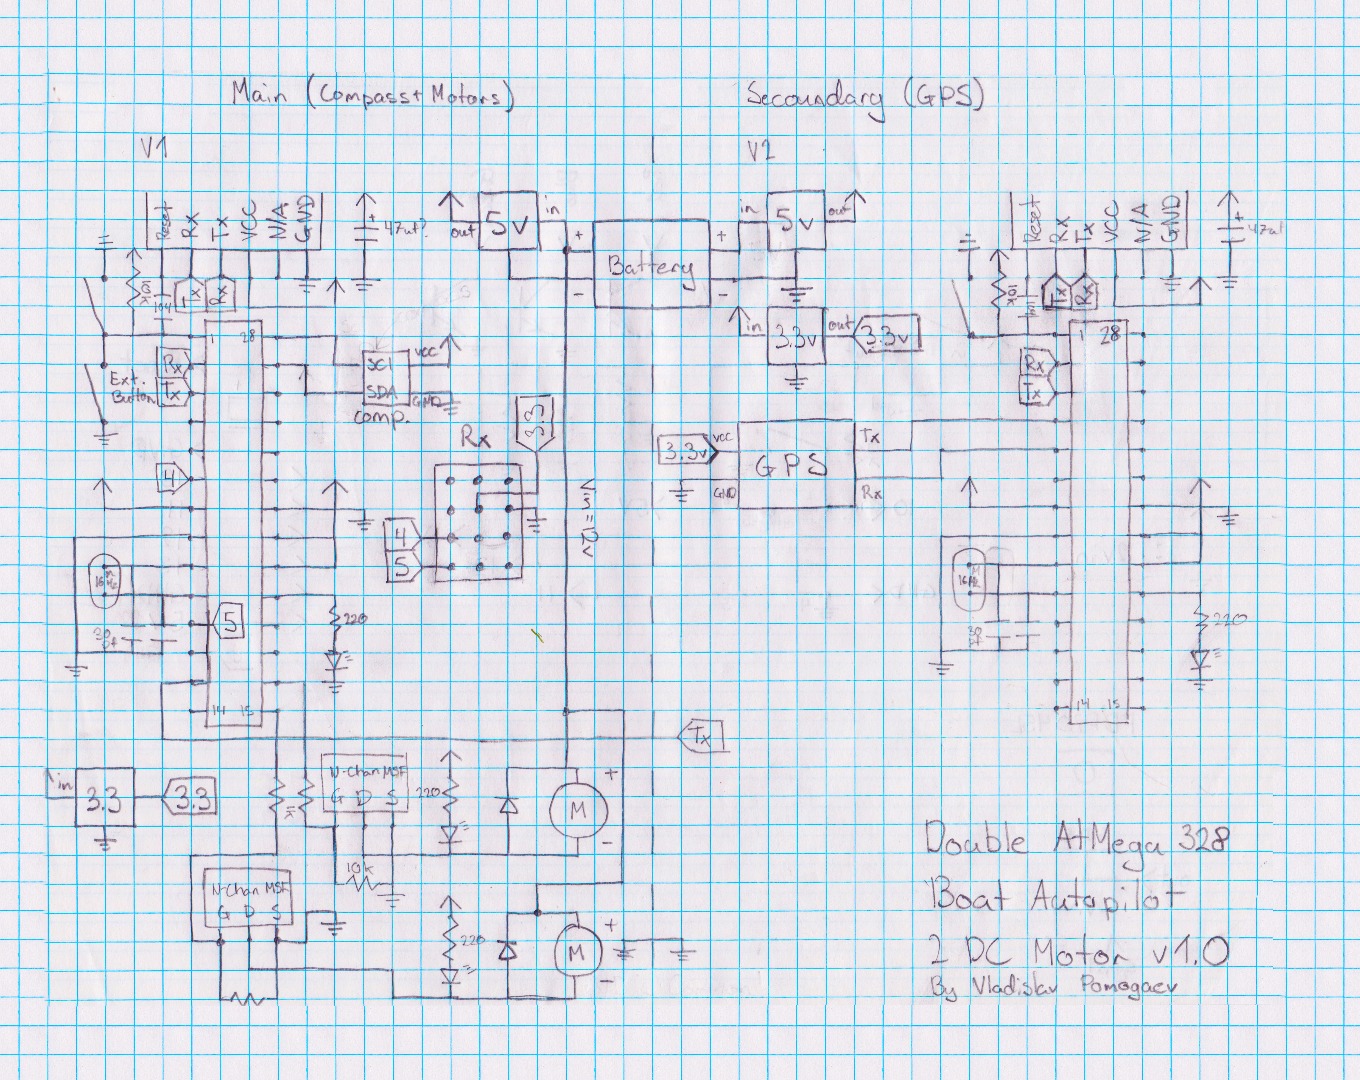 Main (Compass+ Motors)
Secoundary (GPS)
V1
V2
Reset
Rx
Tx
VCC
N/A
GND
+
47uf?
5v
out
in
+
-
Battery
+
-
in
5v
out
Reset
Rx
Tx
VCC
N/A
GND
+
47uf
10k
104
Tx
Rx
in
3.3v
out
3.3v
10k
Tx
Rx
1
28
Rx
Tx
Ext.
Button
SCl
SDA
VCC
GND
comp.
1
28
Rx
Tx
Rx
3.3
3.3v
VCC
GND
GPS
Tx
Rx
4
4
5
Vin=12v
16
MHz
30
pf
5
220
14
15
16
MHz
30
pf
220
14
15
Tx
in
3.3
3.3
1k
N-Chan MSF
G D S
220
10k
M
+
-
N-Chan MSF
G D S
220
M
+
-
Double AtMega 328
Boat Autopilot
2 DC Motor v1.0
By Vladislav Pomogaev